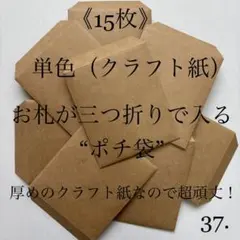 《15枚》
単色（クラフト紙）
お札が三つ折りで入る
“ポチ袋”
厚めのクラフト紙なので超頑丈！
37.